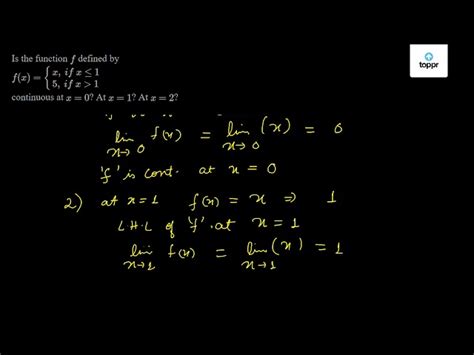 Is the function f defined by
f(x) = { x, if x ≤ 1
5, if x > 1
continuous at x = 0? At x = 1? At x = 2?
toppr
lim x→0 f(x) = lim x→0 (x) = 0
'f' is cont. at x = 0
2) at x = 1 f(x) = x ⇒ 1
L.H.L of 'f' at x = 1
lim x→1 f(x) = lim x→1 (x) = 1